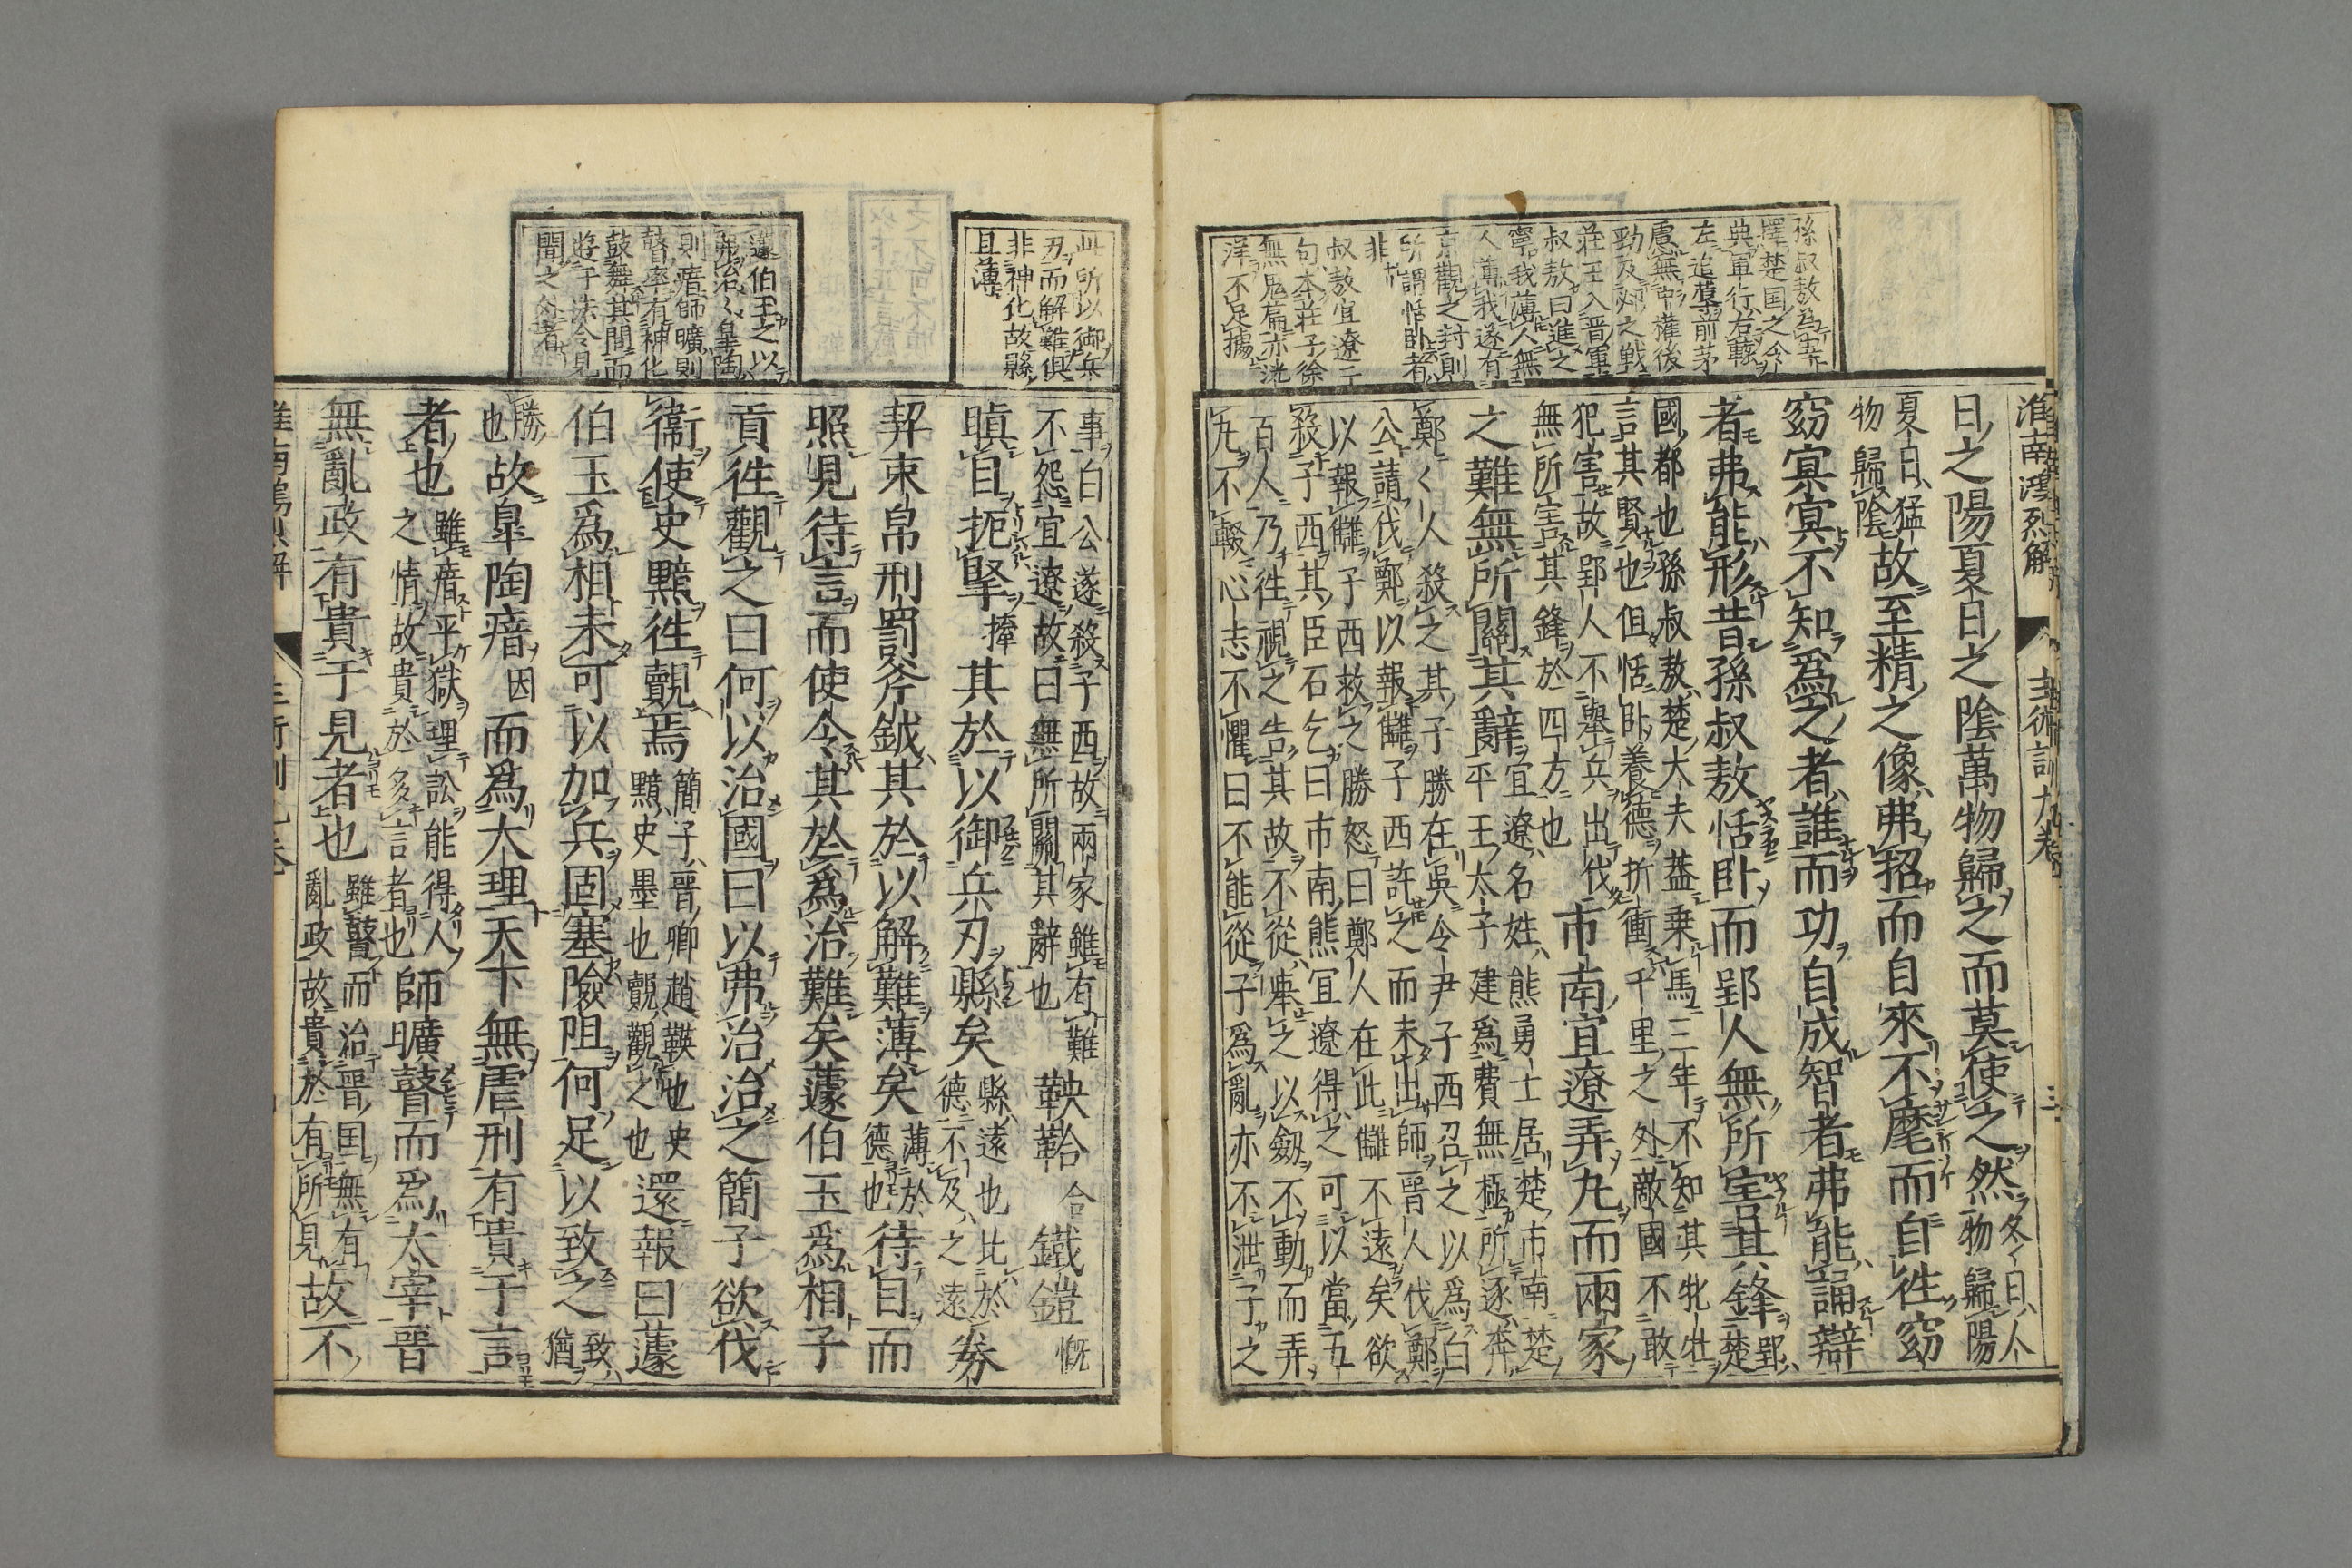 淮南鴻烈解
主術訓九卷
三
孫叔敖爲宰
擇楚国之令
典軍行右轅
左追蓐前茅
慮無中權後
勁及邲之戦
莊王入晉軍
叔敖曰進之
寧我薄人無
人薄我遂有
京觀之封則
所謂恬卧者
非
叔敖宜遼二
句本莊子徐
無鬼篇亦洸
洋不足據
日之陽夏日之陰萬物歸之而莫使之然冬日人物歸陽
夏日猛物歸陰故至精之像弗招而自來不麾而自徃窈
窈冥冥不知爲之者誰而功自成智者弗能誦辯
者弗能形昔孫叔敖恬卧而郢人無所害其鋒郢楚
國都也孫叔敖楚大夫葢乗馬三年不知其牝牡
言其賢也但恬卧養德折衝千里之外敵國不敢
犯害故郢人不舉兵出伐
無所害其鋒於四方也
市南宜遼弄丸而兩家
之難無所關其辭宜遼名姓熊勇士居楚市南楚
平王太子建爲費無極所逐奔
鄭鄭人殺之其子勝在吳令尹子西召之以爲白
公請伐鄭以報讎子西許之而未出師晉人伐鄭
以報讎子西救之勝怒曰鄭人在此讎不遠矣欲
殺子西其臣石乞曰市南熊宜遼得之可以當五
百人乃徃視之告其故不從舉之以劔不動而弄
丸不輟心志不懼曰不能從子爲亂亦不泄子之
此所以御兵
刃而解難俱
非神化故縣
且薄
蘧伯玉之以
弗治治皐陶
則瘖師曠則
瞽率有神化
鼓舞其間而
聞之外者
事白公遂殺子西故兩家雖有難
不怨宜遼故曰無所關其辭也
鞅鞈合鐵鎧慨
瞋目扼掔揅其於以御兵刃縣矣縣遠也比於
德不及之遠
券
契束帛刑罰斧鉞其於以解難薄矣薄於
德也
待目而
照見待言而使令其於爲治難矣蘧伯玉爲相子
貢徃觀之曰何以治國曰以弗治治之簡子欲伐
衞使史黯徃覿焉簡子晉卿趙鞅也史
黯史墨也覿觀之也
還報曰蘧
伯玉爲相未可以加兵固塞險阻何足以致之致
猶
勝
也
故皐陶瘖因而爲大理天下無虐刑有貴于言
者也雖瘖平獄理訟能得人
之情故貴於多言者也
師曠瞽而爲太宰晉
無亂政有貴于見者也雖瞽而治晉国無有
亂政故貴於有所見
故不